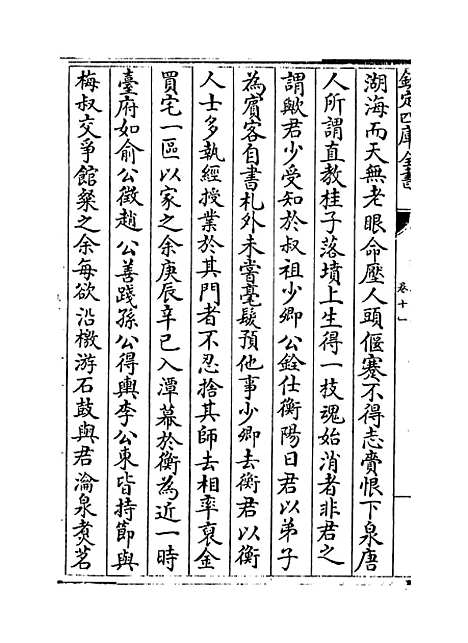 欽定四庫全書
卷十一
湖海而天無老眼命壓人頭偃蹇不得志賫恨下泉唐
人所謂直教桂子落墳上生得一枝魂始消者非君之
謂歟君少受知於叔祖少卿公銓仕衡陽日君以弟子
為賓客自書札外未嘗毫髮預他事少卿去衡君以衡
人士多執經授業於其門者不忍捨其師去相率裒金
買宅一區以家之余庚辰辛巳入潭幕於衡為近一時
臺府如俞公徵趙公善踐孫公得輿李公東皆持節與
梅叔交爭館粲之余每欲沿檄游石鼓與君瀹泉煑茗